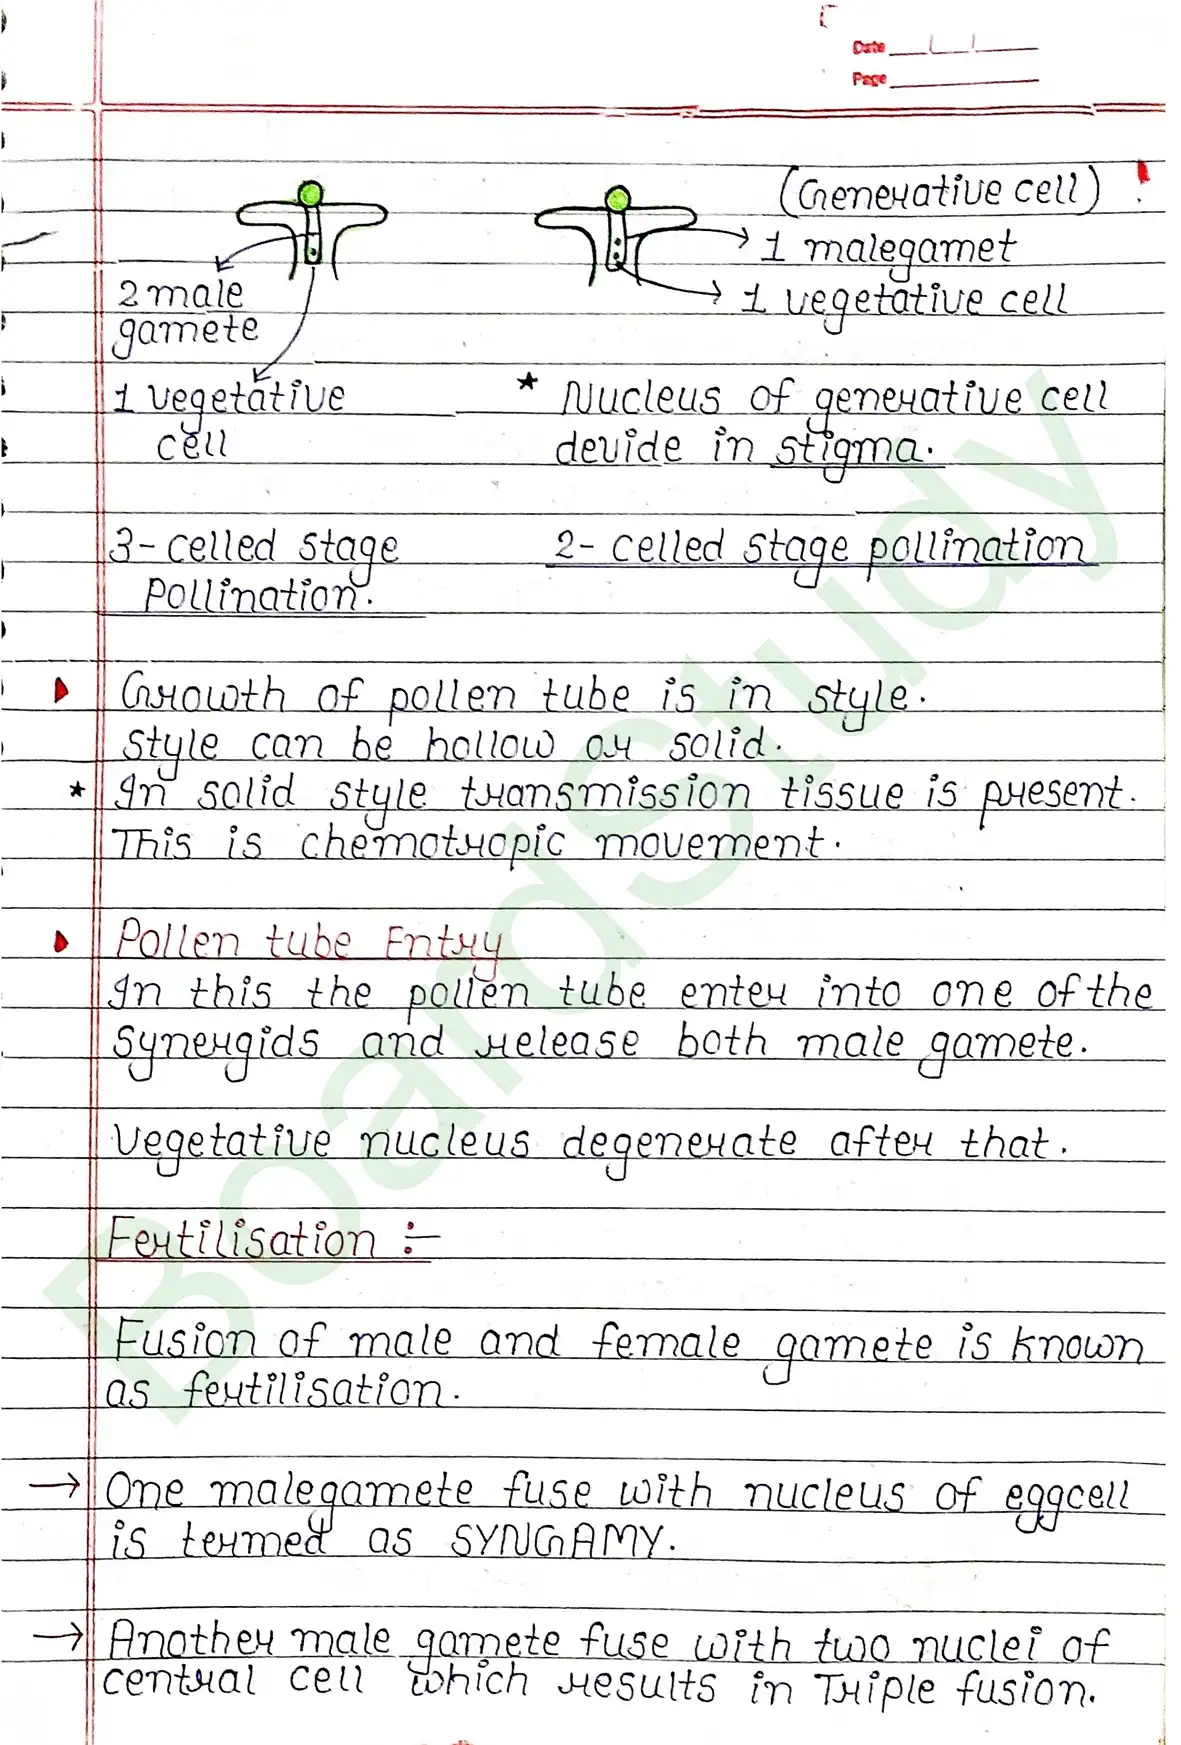 Date
Page
(Generative cell)
1 malegamet
1 vegetative cell
2 male
gamete
1 vegetative
cell
* Nucleus of generative cell
devide in stigma.
3-celled stage
Pollination.
2-celled stage pollination
Growth of pollen tube is in style.
style can be hollow or solid.
* In solid style transmission tissue is present.
This is chemotropic movement.
Pollen tube Entry
In this the pollen tube enter into one of the
synergids and release both male gamete.
Vegetative nucleus degenerate after that.
Fertilisation :-
Fusion of male and female gamete is known
as fertilisation.
→ One malegamete fuse with nucleus of eggcell
is termed as SYNGAMY.
→ Another male gamete fuse with two nuclei of
central cell which results in Triple fusion.
BoardStudy